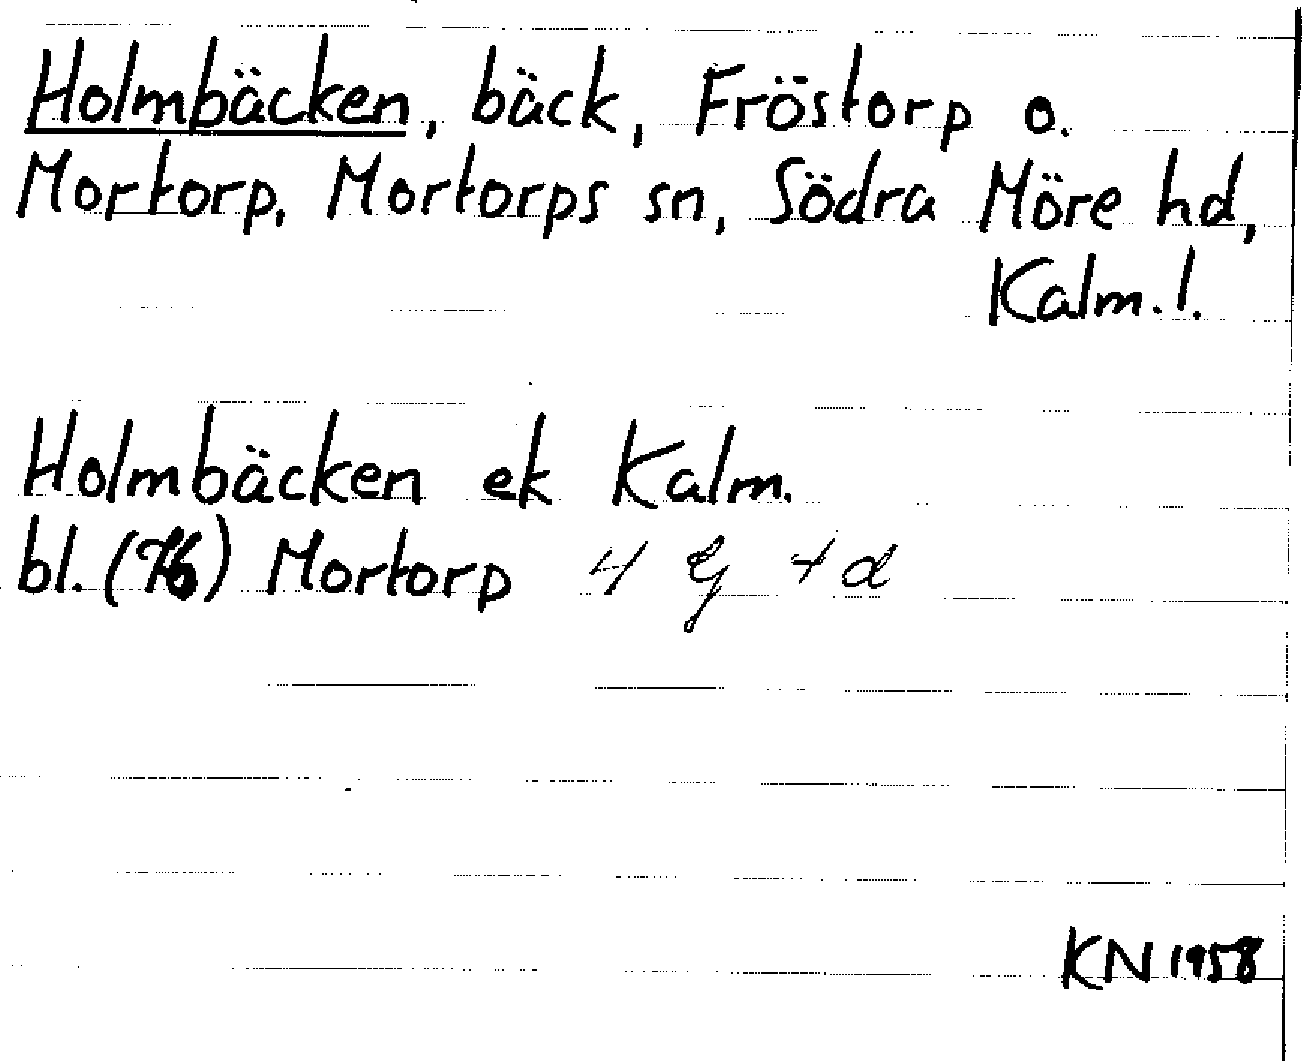 Holmbäcken, bäck, Fröstorp o.
Mortorp, Mortorps sn, Södra Möre hd,
Kalm. l.
Holmbäcken ek Kalm.
bl. (76) Mortorp 4 g + d
KN 1958